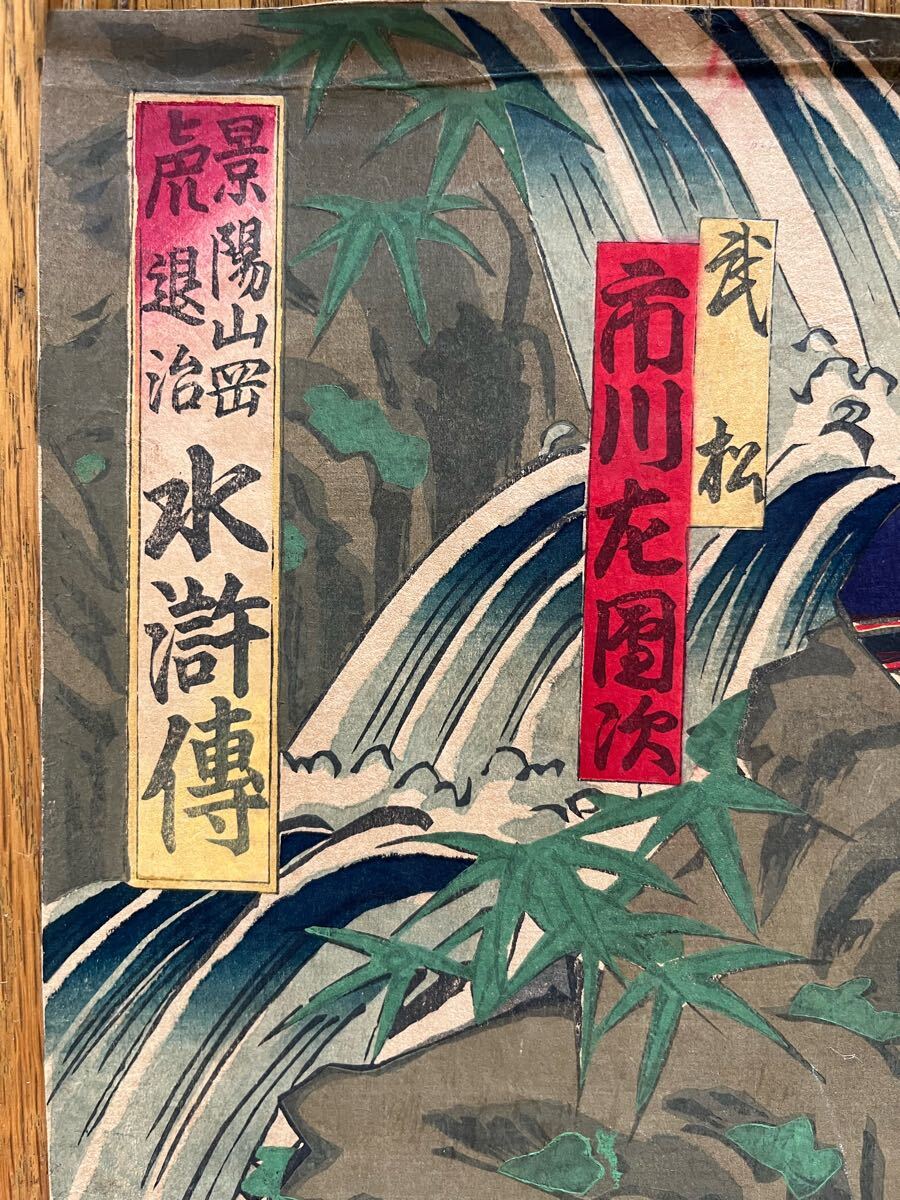 武松
市川左團次
景陽山岡
虎退治
水滸傳